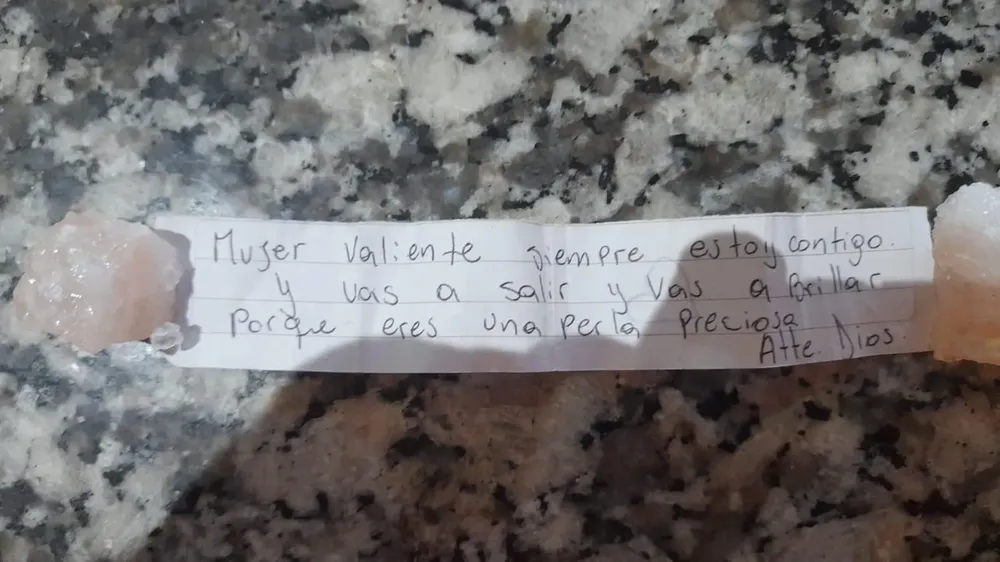 Mujer Valiente siempre estoy contigo.
y vas a salir y Vas a Brillar
Porque eres una perla preciosa
Atte. Dios.